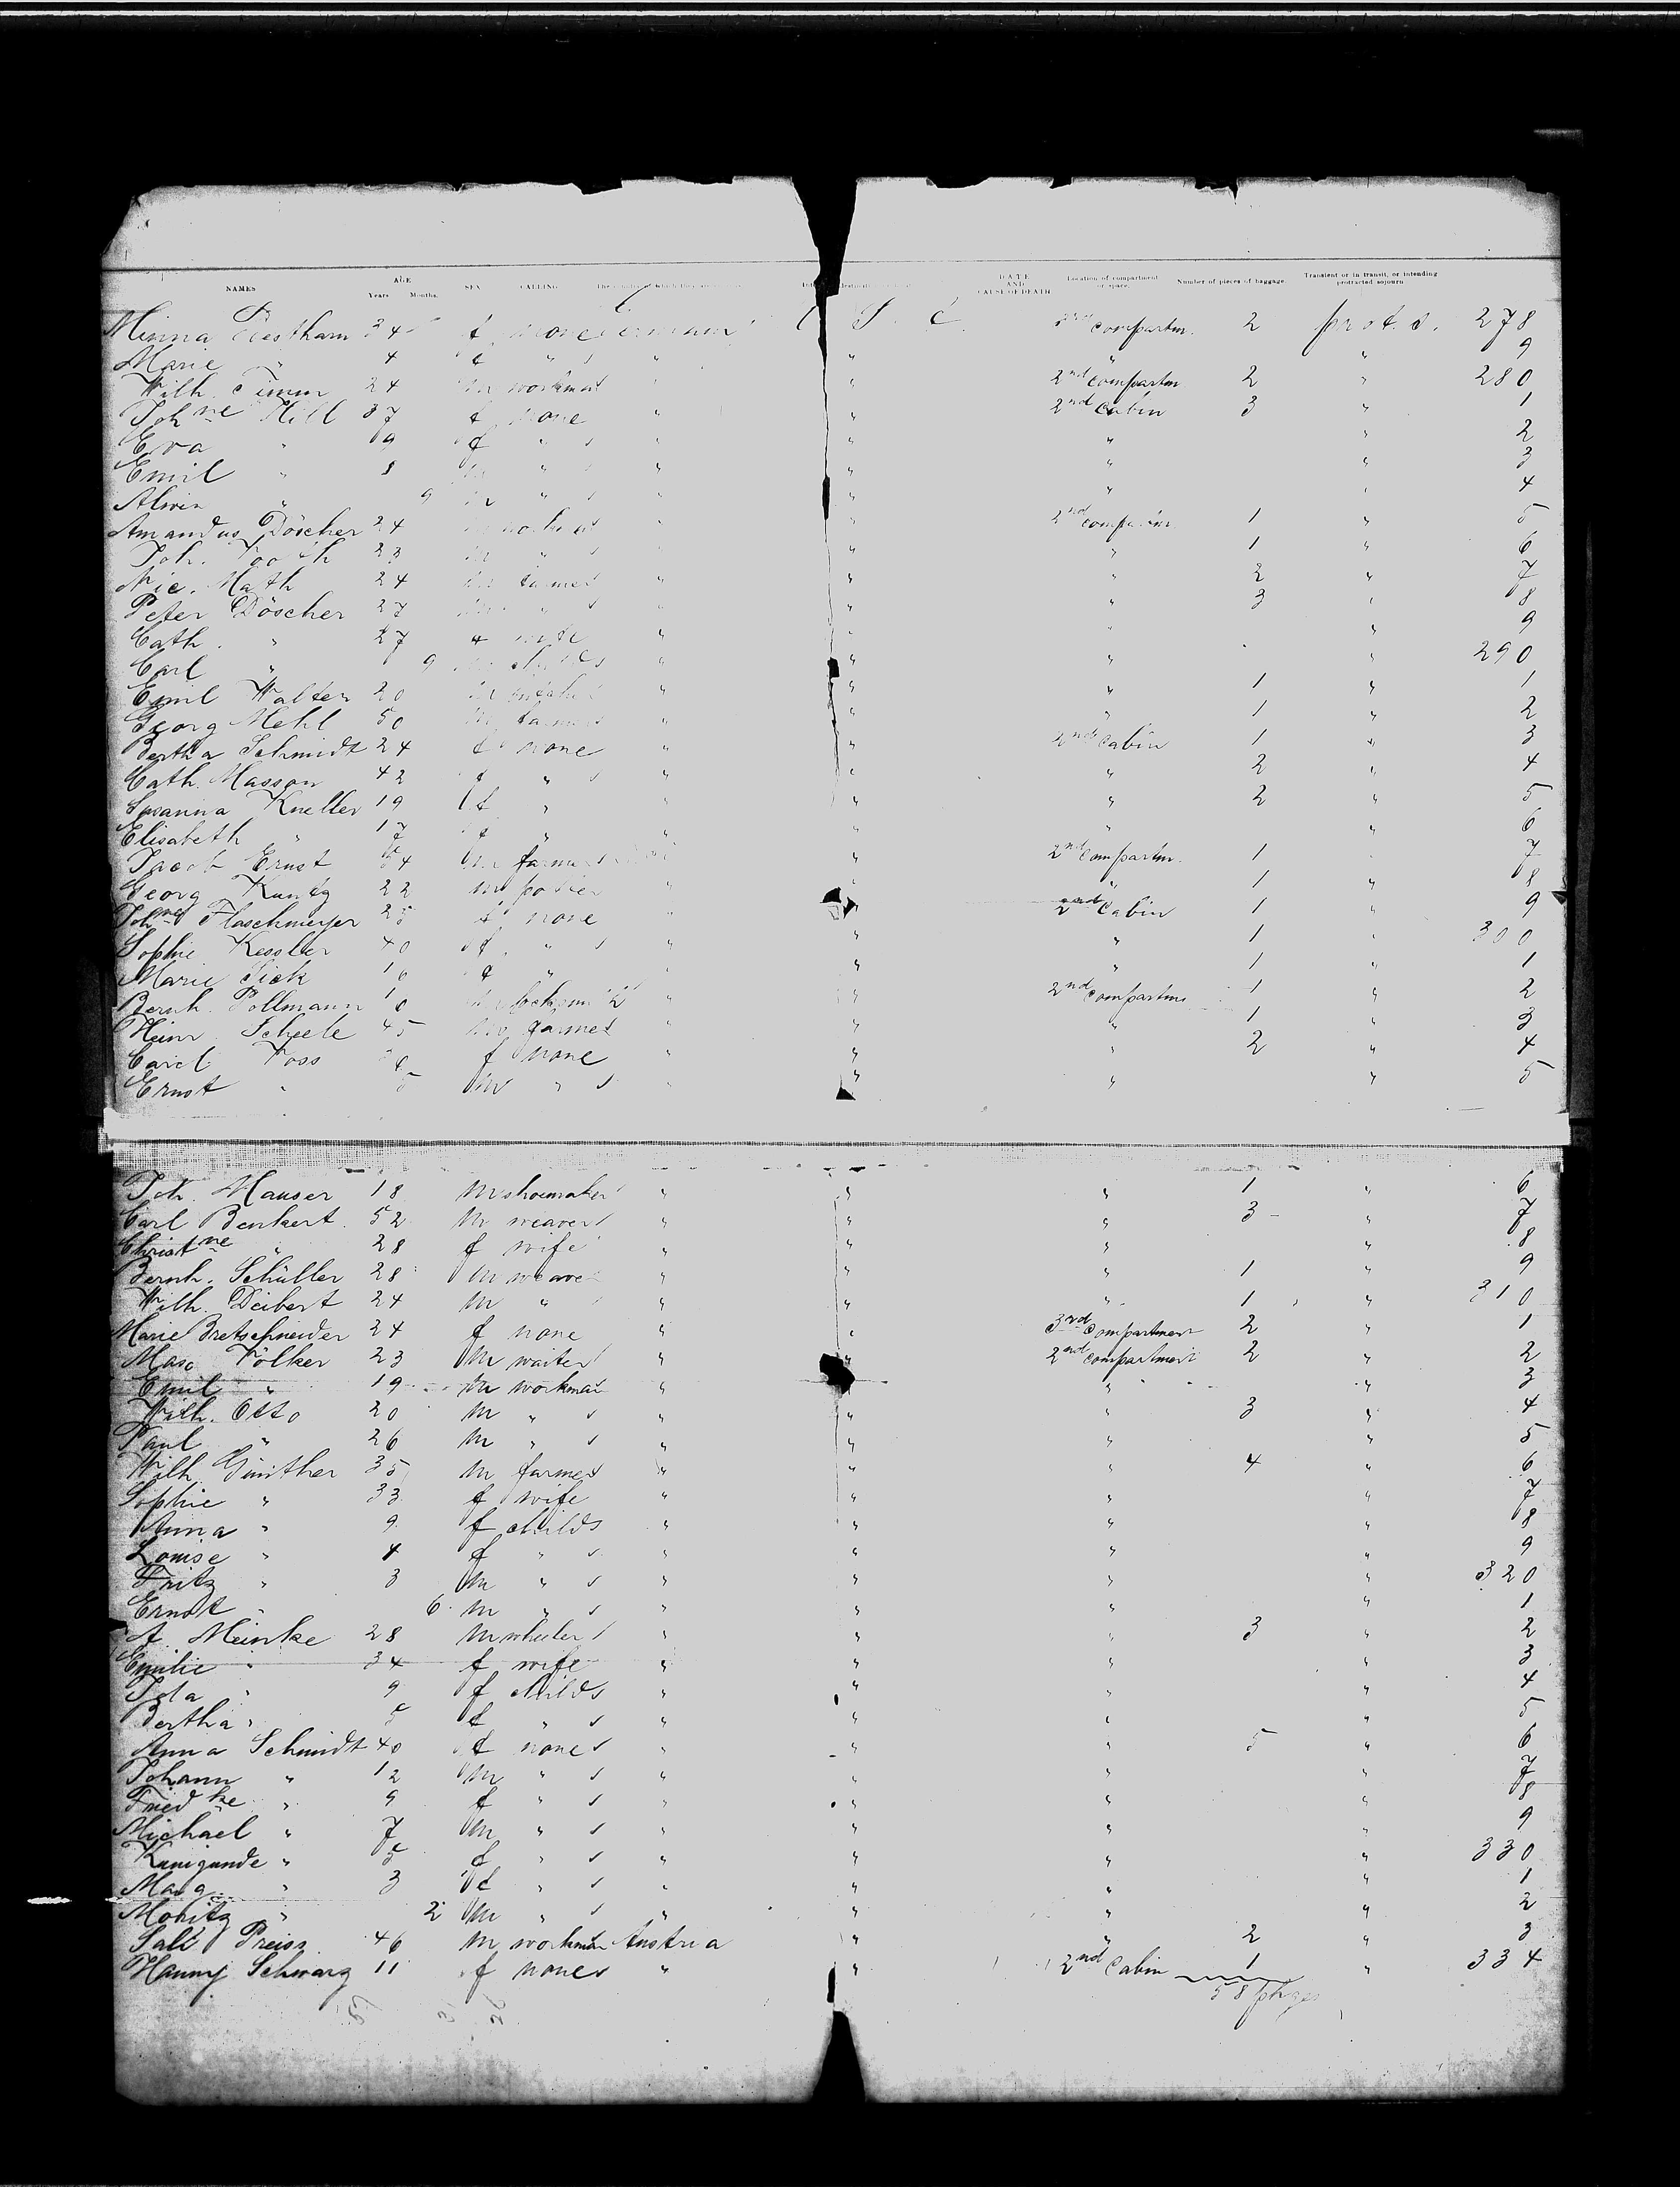 NAMES AGE Years Months. SEX CALLING DATE AND CAUSE OF DEATH Location of compartment or space. Number of pieces of baggage. Transient or in transit, or intending protracted sojourn
Minna 34 f none 3rd compartm. 2 prot. s. 278
Marie " 4 f " " " " " 9
Wilh. Timm 24 m workman " " 2nd compartm 2 " 280
Joh ne Hill 37 f none " " 2nd Cabin 3 " 1
Eva " 9 f " " " " 2
Emil " 8 m " " " " " 3
Alwin " 9 m " " " " 4
Amandus Döscher 24 m " 2nd compartm 1 " 5
Joh. 23 m " " " 1 " 6
Nic. Math 24 m farmer " " " 2 " 7
Peter Döscher 27 m " " " 3 " 8
Cath. " 27 f wife " " " " 9
Carl " 9 m child " " " " 290
Emil Walter 20 m " " " 1 " 1
Georg Mehl 50 m farmer " " " 1 " 2
Bertha Schmidt 24 f none " " 2nd Cabin 1 " 3
Cath. Masson 42 f " " " " 2 " 4
Susanna Kneller 19 f " " " " 2 " 5
Elisabeth " 17 f " " " " " 6
Jacob Ernst 54 m farmer " 2nd compartm. 1 7
Georg 22 m " " " 1 " 8
Joh ne Flaschmeyer 25 f none " " 2nd Cabin 1 " 9
Sophie Kessler 40 f " " " 1 " 300
Marie 16 f " " " " 1 " 1
Bernh. Pollmann m locksmith " " 2nd compartm 1 " 2
Heinr. Scheele 45 m farmer " " " 1 " 3
Carol. Voss f none " " " 2 " 4
Ernst " 5 m " " " " " 5
Joh. Mauser 18 m shoemaker " " " 1 " 6
Carl Benkert 52 m weaver " " " 3 " 7
Christ ne " 28 f wife " " " " 8
Bernh. Schüller 28 m weaver " " " 1 " 9
Wilh. Deibert 24 m " " " " 1 " 310
Marie Bretschneider 24 f none " " 3rd compartment 2 " 1
Max Völker 23 m waiter " " 2nd compartment 2 " 2
Emil " 19 m workman " " " " 3
Wilh. Otto 20 m " " " " 3 " 4
Paul " 26 m " " " " " 5
Wilh. Günther 35 m farmer " " " 4 " 6
Sophie " 33 f wife " " " " 7
Anna " 9 f child " " " " 8
Louise " 4 f " " " " " 9
Fritz " 3 m " " " " " 320
Ernst " 6 m " " " " " 1
A. Meinke 28 m wheeler " " " 3 " 2
Emilie " 34 f wife " " " " 3
Ida " 9 f child " " " " 4
Bertha " 5 f " " " " " 5
Anna Schmidt 40 f none " " " 5 " 6
Johann " 12 m " " " " " 7
Fried ke " 9 f " " " " " 8
Michael " 7 m " " " " " 9
Kunigunde " 5 f " " " " " 330
Marg. " 3 f " " " " " 1
Moritz " 2 m " " " " " 2
Sali Preiss 46 m workman Austria " " 2 " 3
Hanny Schwarz 11 f none " " 2nd Cabin 1 " 334
58 pkges